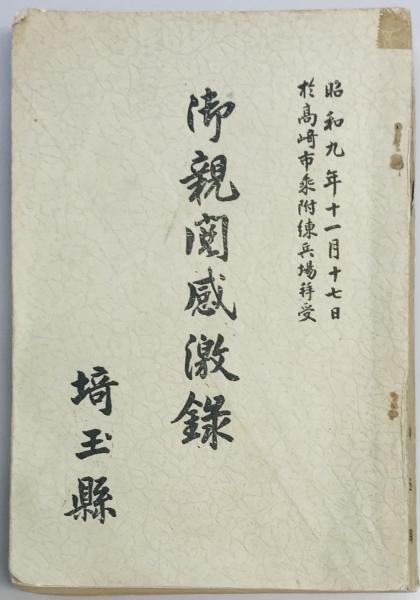 昭和九年十一月十七日
於高崎市乘附練兵場拜受
御親閲感激錄
埼玉縣